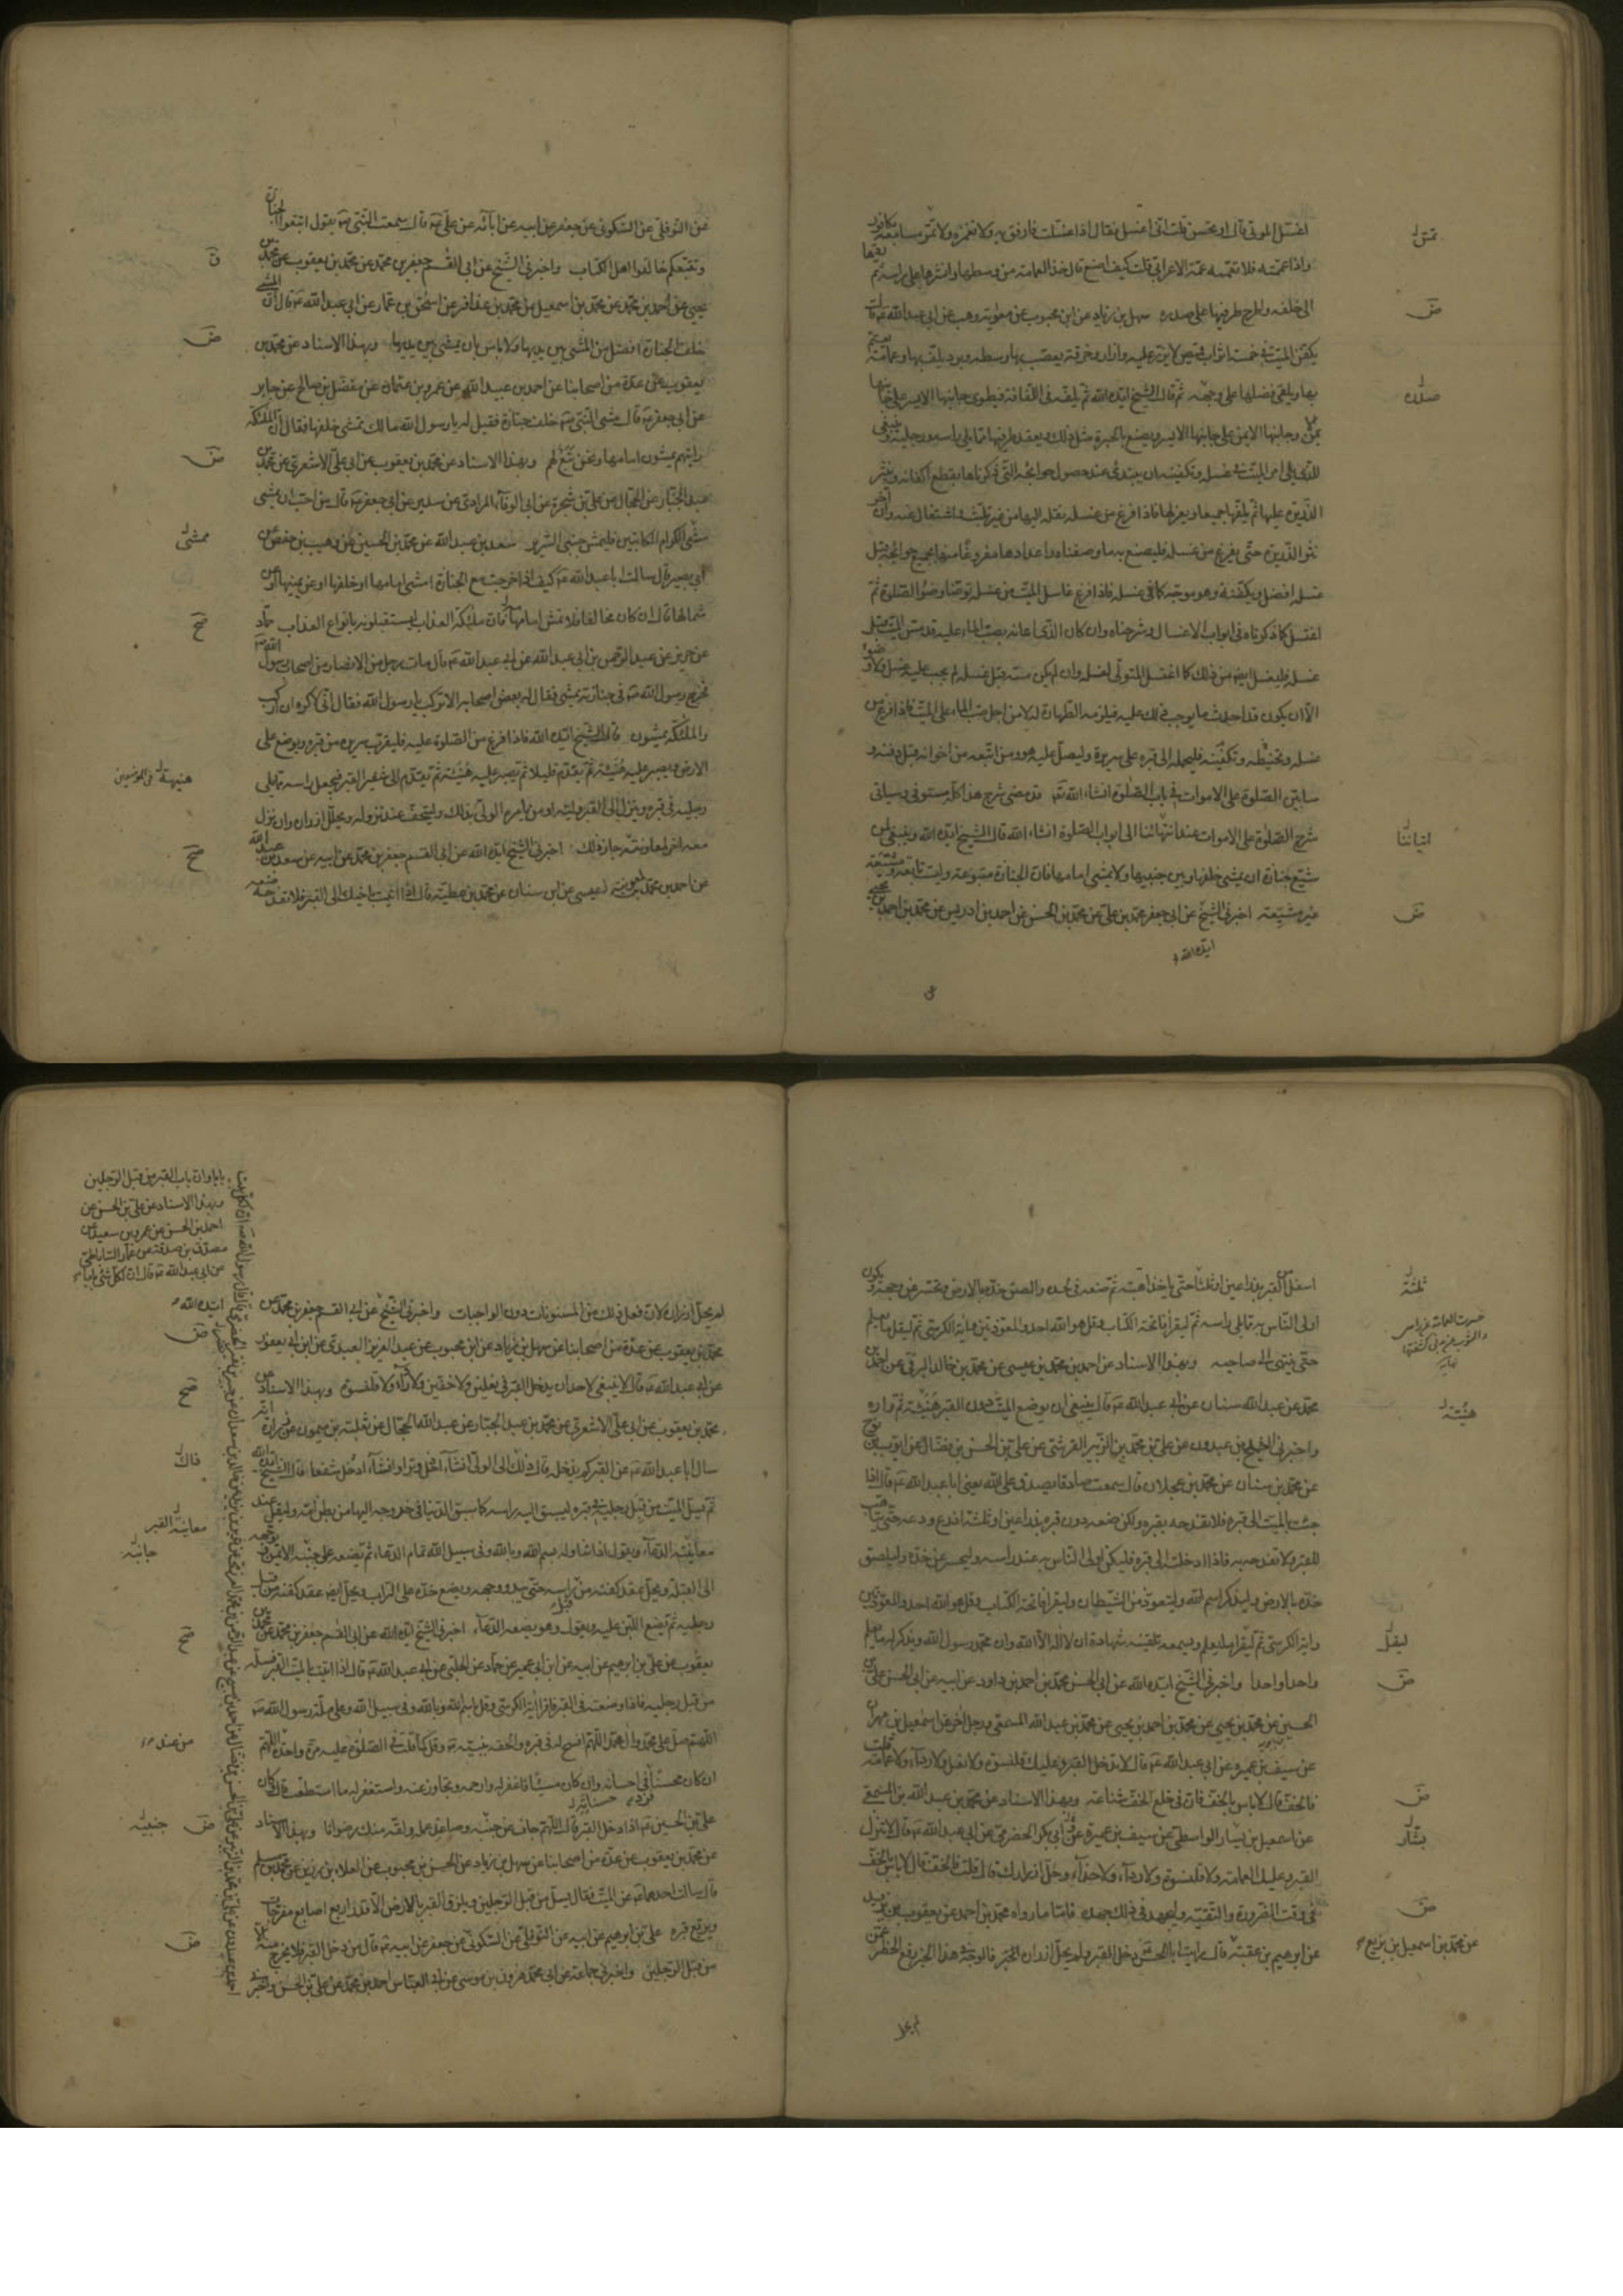 اغسل الموتى قال او تحسن قلت انى اغسل فقال اذا غسلت فارفق به ولا تغمزه ولا تمس مسامعه بكافور
واذا عممته فلا تعممه عمة الاعرابى قلت كيف اصنع قال خذ العمامة من وسطها وانشرها على راسه ثم ردها
الى خلفه واطرح طرفيها على صدره سهل بن زياد عن ابن محبوب عن معوية بن وهب عن ابى عبد الله ع قال
يكفن الميت فى خمسة اثواب قميص لا يزر عليه وازار وخرقة يعصب بها وسطه وبرد يلف بها وعمامة يعتم
بها ويلقى فضلها على وجهه ثم قال الشيخ ايده الله ثم يلفه فى اللفافة فيطوى جانبها الايسر على جانبها
الايمن وجانبها الايمن على جانبها الايسر ويصنع بالحبرة مثل ذلك ويعقد طرفيها مما يلى راسه ورجليه وينبغى
للذى يلى امر الميت فى غسله وتكفينه ان يبتدئ عند حصول حوائجه التى ذكرناها بقطع اكفانه وينثر
الذريرة عليها ثم يلفها جميعا ويعزلها فاذا فرغ من غسله نقله اليها من غير تلبث واشتغال عنه وان اخر
نثر الذريرة حتى يفرغ من غسله فليصنع به ما وصفناه واعدادها مفروغا منها بجميع حوائجه قبل
غسله افضل ويكفنه وهو موجه كما فى غسله فاذا فرغ غاسل الميت من غسله توضأ وضوء الصلوة ثم
اغتسل كما ذكرناه فى ابواب الاغسال وشرحناه وان كان الذى اعانه بصب الماء عليه قد مس الميت قبل
غسله فليغتسل ايضا من ذلك كما اغتسل المتولى لغسله وان لم يكن مسه قبل غسله لم يجب عليه غسل ولا وضوء
الا ان يكون قد احدث ما يوجب ذلك عليه فيلزمه الطهارة له لا من اجل صب الماء على الميت فاذا فرغ من
غسله وتحنيطه وتكفينه فليحمله الى قبره على سريره وليصل عليه هو ومن اتبعه من اخوانه قبل دفنه و
سابين الصلوة على الاموات فى باب الصلوة انشاء الله تعالى قد مضى شرح هذا كله مستوفى وسياتى
شرح الصلوة على الاموات عند انتهائنا الى ابواب الصلوة انشاء الله قال الشيخ ايده الله وينبغى لمن
شيع جنازة ان يمشى خلفها وبين جنبيها ولا يمشى امامها فان الجنازة متبوعة وليست تابعة ومشيعة
غير مشيعة اخبرنى الشيخ عن ابى جعفر محمد بن على عن محمد بن الحسن عن احمد بن ادريس عن محمد بن احمد بن يحيى
ايده الله
عن
صدره
اتياننا
عن النوفلى عن السكونى عن جعفر عن ابيه عن آبائه عن على ع قال سمعت النبى ص يقول اتبعوا الجنازة
ولا تتبعكم خالفوا اهل الكتاب واخبرنى الشيخ عن ابى القسم جعفر بن محمد عن محمد بن يعقوب عن محمد بن
يحيى عن احمد بن محمد عن محمد بن اسمعيل عن محمد بن عذافر عن اسحق بن عمار عن ابى عبد الله ع قال المشى
خلف الجنازة افضل من المشى بين يديها ولا باس بان يمشى بين يديها وبهذا الاسناد عن محمد بن
يعقوب عن عدة من اصحابنا عن احمد بن عبد الله عن عمرو بن عثمان عن مفضل بن صالح عن جابر
عن ابى جعفر ع قال مشى النبى ص خلف جنازة فقيل له يا رسول الله مالك تمشى خلفها فقال ان الملئكة
رايتهم يمشون امامها ونحن تبع لهم وبهذا الاسناد عن محمد بن يعقوب عن ابى على الاشعرى عن محمد بن
عبد الجبار عن الحجال عن على بن شجرة عن ابى الوفاء المرادى عن سدير عن ابى جعفر ع قال من احب ان يمشى
مشى الكرام الكاتبين فليمش جنبى السرير سعد بن عبد الله عن محمد بن الحسين عن وهيب بن حفص عن
ابى بصير قال سالت ابا عبد الله ع كيف اذا خرجت مع الجنازة امشى امامها او خلفها او عن يمينها او عن
شمالها قال ان كان مخالفا فلا تمش امامها فان ملئكة العذاب يستقبلونه بانواع العذاب حماد
عن حريز عن عبد الرحمن بن ابى عبد الله عن ابى عبد الله ع قال مات رجل من الانصار من اصحاب رسول الله ص
فخرج رسول الله ص فى جنازته يمشى فقال له بعض اصحابه الا تركب يا رسول الله فقال انى لاكره ان اركب
والملئكة يمشون قال الشيخ ايده الله فاذا فرغ من الصلوة عليه فليقرب سريره من قبره ويوضع على
الارض ويصبر عليه هنيئة ثم يقدم قليلا ثم يصبر عليه هنيئة ثم يقدم الى شفير القبر فيجعل راسه مما يلى
رجليه فى قبره وينزل الى القبر وليه او من يامره الولى بذلك وليتحف عند نزوله ويحلل ازراره وان نزل
معه اخر لمعاونته جاز ذلك اخبرنى الشيخ ايده الله عن ابى القسم جعفر بن محمد عن ابيه عن سعد بن عبد الله
عن احمد بن محمد بن عيسى عن ابن سنان عن محمد بن عطية قال اذا اتيت باخيك الى القبر فلا تفدحه
اسفل من القبر بذراعين او ثلثة حتى ياخذ اهبته ثم ضعه فى لحده والصق خده بالارض وتحسر عن وجهه ويكون
اولى الناس به مما يلى راسه ثم ليقرا فاتحة الكتاب وقل هو الله احد والمعوذتين واية الكرسى ثم ليقل ما يعلم
حتى ينتهى الى صاحبه وبهذا الاسناد عن احمد بن محمد بن عيسى عن محمد بن خالد البرقى عن احمد بن
محمد عن عبد الله سنان عن ابى عبد الله ع قال ينبغى ان يوضع الميت دون القبر هنيئة ثم واره
واخبرنى احمد بن عبدون عن على بن محمد بن الزبير القرشى عن على بن الحسن بن فضال عن ايوب بن نوح
عن محمد بن سنان عن محمد بن عجلان قال سمعت صادقا يصدق على الله يعنى ابا عبد الله ع قال اذا
جئت بالميت الى قبره فلا تفدحه بقبره ولكن ضعه دون قبره بذراعين او ثلثة اذرع ودعه حتى يتاهب
للقبر ولا تفدحه به فاذا ادخلته الى قبره فليكن اولى الناس به عند راسه وليحسر عن خده وليلصق
خده بالارض وليذكر اسم الله وليتعوذ من الشيطان وليقرا فاتحة الكتاب وقل هو الله احد والمعوذتين
واية الكرسى ثم ليقل ما يعلم ويسمعه تلقينه شهادة ان لا اله الا الله وان محمد رسول الله ويذكر له ما يعلم
واحدا واحدا واخبرنى الشيخ ايده الله عن ابى الحسن محمد بن احمد بن داود عن ابيه عن ابى الحسن على بن
الحسين عن محمد بن يحيى عن محمد بن احمد بن يحيى عن محمد بن عبد الله المسمعى ورجل اخر عن اسمعيل بن مهران
عن سيف بن عميرة عن ابى عبد الله ع قال لا تدخل القبر وعليك قلنسوة ولا نعل ولا رداء ولا عمامة قلت
فالخف قال لا باس بالخف فان فى خلع الخف شناعة وبهذا الاسناد عن محمد بن عبد الله بن المسمعى
عن اسمعيل بن يسار الواسطى عن سيف بن عميرة عن ابى بكر الحضرمى عن ابى عبد الله ع قال لا تنزل
القبر وعليك العمامة ولا قلنسوة ولا رداء ولا حذاء وحل ازرارك قال قلت فالخف قال لا باس بالخف
فى وقت الضرورة والتقية وليجهد فى ذلك جهده فاما ما رواه محمد بن احمد عن يعقوب بن يزيد
عن ابرهيم بن عقبة قال رايت ابا الحسن ع دخل القبر ولم يحل ازراره الخبر فالوجه فى هذا الخبر رفع الحظر عمن
لم يحل
ثلثة
هنيئة
ليقل
بشار
عن محمد بن اسمعيل بن بزيع
لم يحل ازراره لان فعل ذلك من المسنونات دون الواجبات واخبرنى الشيخ عن ابى القسم جعفر بن محمد عن
محمد بن يعقوب عن عدة من اصحابنا عن سهل بن زياد عن ابن محبوب عن عبد العزيز العبدى عن ابن ابى يعفور
عن ابى عبد الله ع قال لا ينبغى لاحد ان يدخل القبر فى نعلين ولا خفين ولا رداء ولا قلنسوة وبهذا الاسناد عن
محمد بن يعقوب عن ابى على الاشعرى عن محمد بن عبد الجبار عن عبد الله الحجال عن ثعلبة بن ميمون عن زرارة انه
سال ابا عبد الله ع عن القبر كم يدخله قال ذلك الى الولى ان شاء ادخل وترا وان شاء ادخل شفعا قال الشيخ ايده الله
ثم يسل الميت من قبل رجليه فى قبره ليسبق اليه راسه كما سبق الدنيا فى خروجه اليها من بطن امه وليقل عند
معاينة الدعاء ويقول اذا تناوله بسم الله وبالله وفى سبيل الله تمام الدعاء ثم يضعه على جنبه الايمن ووجهه
الى القبلة ويحل عقد كفنه من راسه حتى يبدو وجهه ويضع خده على التراب ويحل ايضا عقد كفنه من قبل
رجليه ثم يضع اللبن عليه ويقول وهو يضعه الدعاء اخبرنى الشيخ ايده الله عن ابى القسم جعفر بن محمد عن محمد بن
يعقوب عن على بن ابرهيم عن ابيه عن ابن ابى عمير عن حماد عن الحلبى عن ابى عبد الله ع قال اذا اتيت بالميت القبر فسله
من قبل رجليه فاذا وضعته فى القبر فاقرا اية الكرسى وقل بسم الله وبالله وفى سبيل الله وعلى ملة رسول الله ص
اللهم صل على محمد وال محمد اللهم افسح له فى قبره والحقه بنبيه ص وقل كما قلت فى الصلوة عليه مرة واحدة اللهم
ان كان محسنا فى احسانه وان كان مسيئا فاغفر له وارحمه وتجاوز عنه واستغفر له ما استطعت قال وكان
على بن الحسين ع اذا ادخل القبر قال اللهم جاف عن جنبه وصاعد عمله ولقه منك رضوانا وبهذا الاسناد
عن محمد بن يعقوب عن عدة من اصحابنا عن سهل بن زياد عن الحسن بن محبوب عن العلاء بن رزين عن محمد بن مسلم
قال سالت احدهما ع عن الميت فقال يسل من قبل الرجلين ويلزق القبر بالارض الا قدر اربع اصابع مفرجات
ويرفع قبره على بن ابرهيم عن ابيه عن النوفلى عن السكونى عن جعفر عن ابيه ع قال من دخل القبر فلا يخرج منه الا
من قبل الرجلين واخبرنى جماعة عن ابى محمد هرون بن موسى عن ابى العباس احمد بن محمد عن على بن الحسن واخبرنى
بابا وان باب القبر من قبل الرجلين
وبهذا الاسناد عن على بن الحسن عن
احمد بن الحسن عن عمرو بن سعيد عن
مصدق بن صدقة عن عمار الساباطى
عن ابى عبد الله ع قال ان لكل شئ بابا
ايده الله
معاينة القبر
جانبه
من عندك
جنبيه